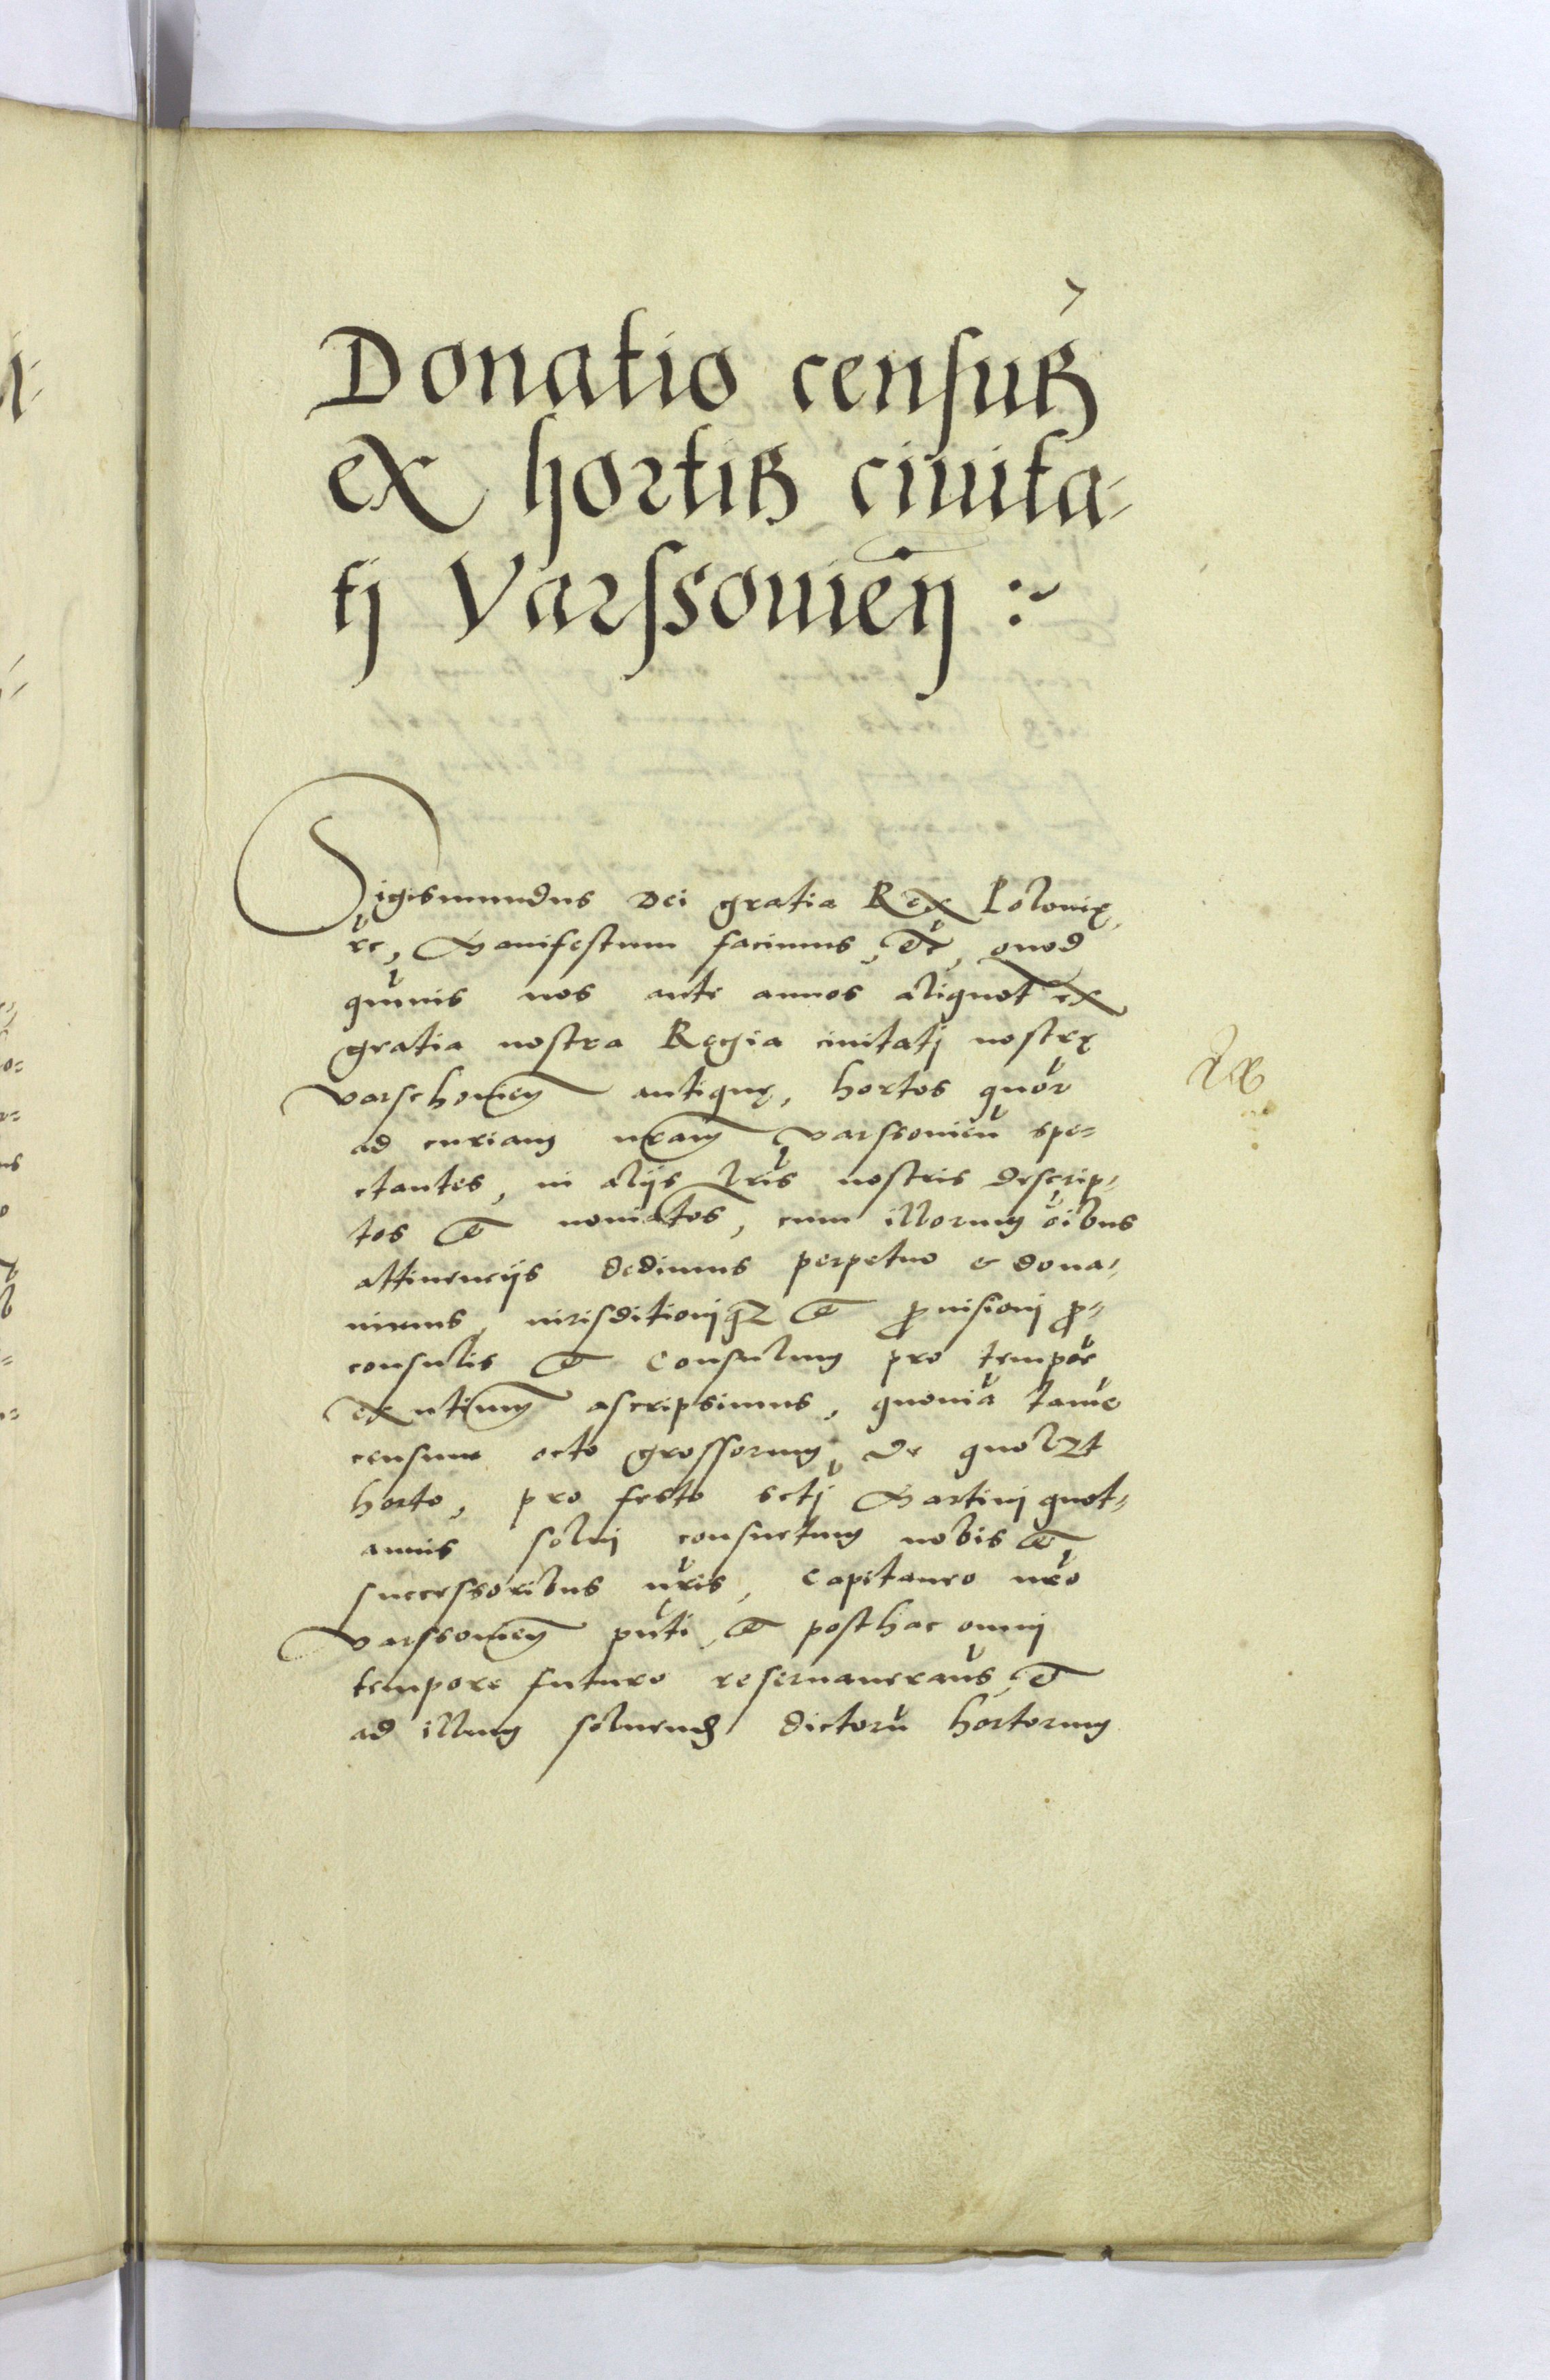 Donatio censuß
ex hortiß ciuita-
tj Varssouień :~
Sigismundus Dei gratia Rex Polonię,
rc, Manifestum facimus, etc, quod
quiuis nos ante annos aliquot ex
gratia nostra Regia ciuitatj nostrę
varschouień antiquę, hortos quor
ad curiam nram varssouien̄ spe-
ctantes, in alijs lris nostris descrip-
tos et nomiatos, cum illorum oibus
attinencijs dedimus perpetuo & dona-
uimus, iurisditionjqz et ꝓuisionj ꝓ-
consulis et Consulum pro tempore
exn̄tium ascripsimus, quoniā tamē
censum octo grossorum de quolzt
horto, pro festo sctj Martinj quot-
annis soluj consuetum nobis et
successoribus nr̄is, Capitaneo nr̄o
varssouień pn̄ti, et posthac omnj
tempore futuro reseruaueraūs, et
ad illum soluend dictorū hortorum